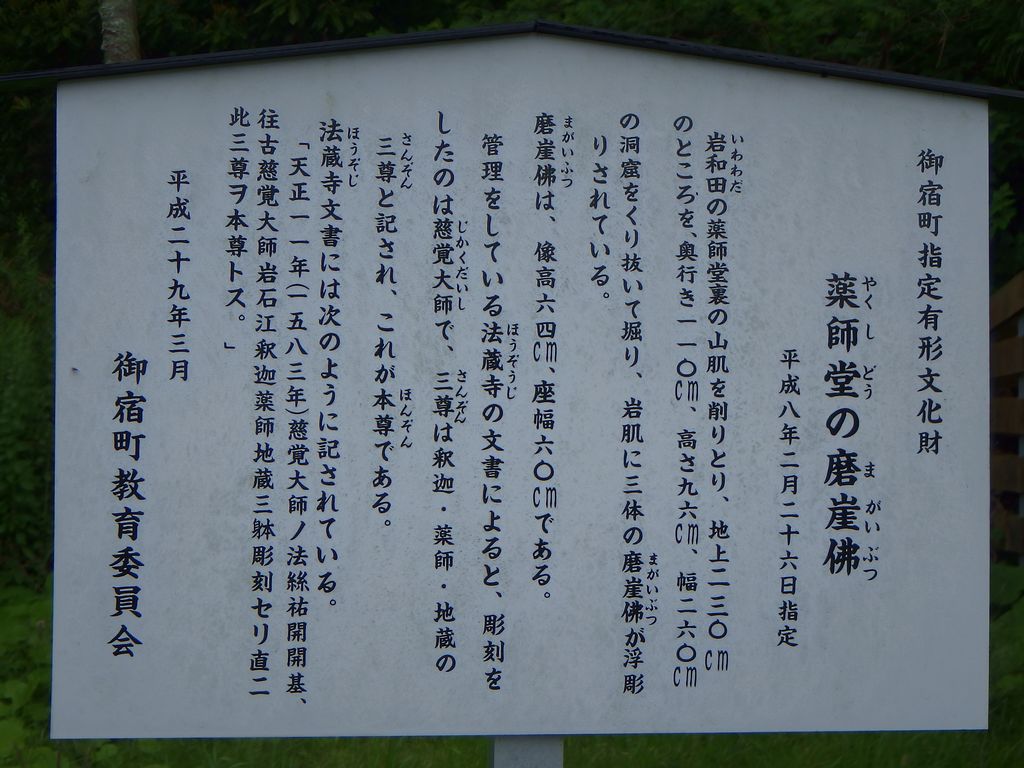 御宿町指定有形文化財
薬師堂の磨崖佛
やくしどう まがいぶつ
平成八年二月二十六日指定
岩和田の薬師堂裏の山肌を削りとり、地上二三〇cm
いわわだ
のところを、奥行き一一〇cm、高さ九六cm、幅二六〇cm
の洞窟をくり抜いて堀り、岩肌に三体の磨崖佛が浮彫
まがいぶつ
りされている。
磨崖佛は、像高六四cm、座幅六〇cmである。
まがいふつ
管理をしている法蔵寺の文書によると、彫刻を
ほうぞうじ
したのは慈覚大師で、三尊は釈迦・薬師・地蔵の
じかくだいし さんぞん
三尊と記され、これが本尊である。
さんぞん ほんぞん
法蔵寺文書には次のように記されている。
ほうぞじ
「天正一一年(一五八三年)慈覚大師ノ法絲祐開開基、
往古慈覚大師岩石江釈迦薬師地蔵三躰彫刻セリ直ニ
此三尊ヲ本尊トス。」
平成二十九年三月
御宿町教育委員会